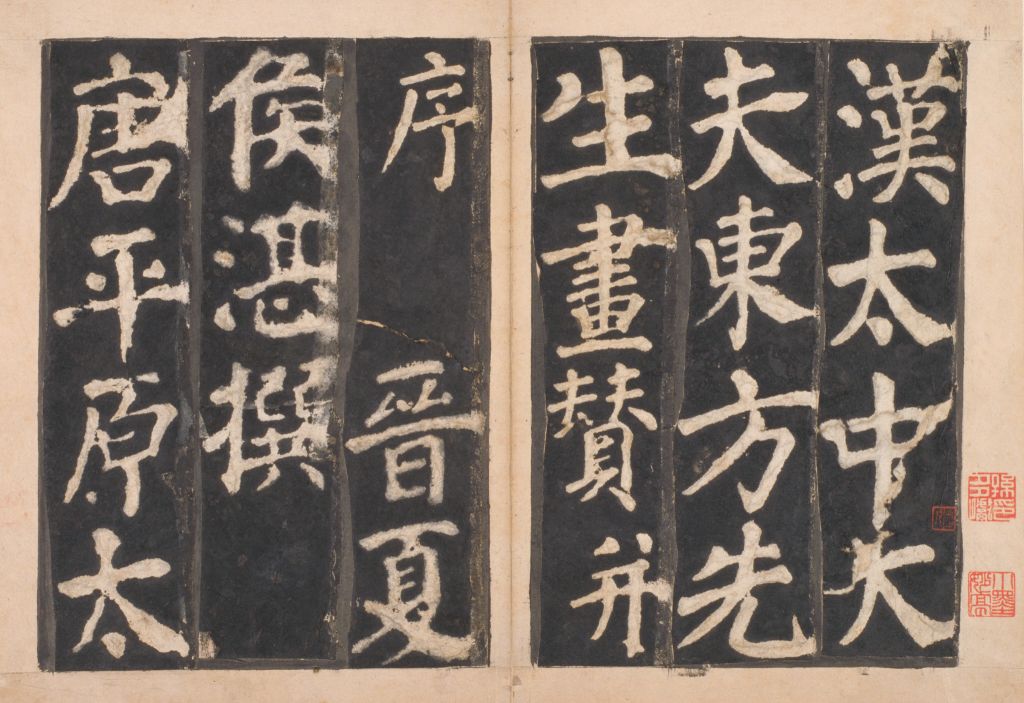 漢太中大
夫東方先
生畫賛并
序 晉夏
侯湛撰
唐平原太
小墨妙亭